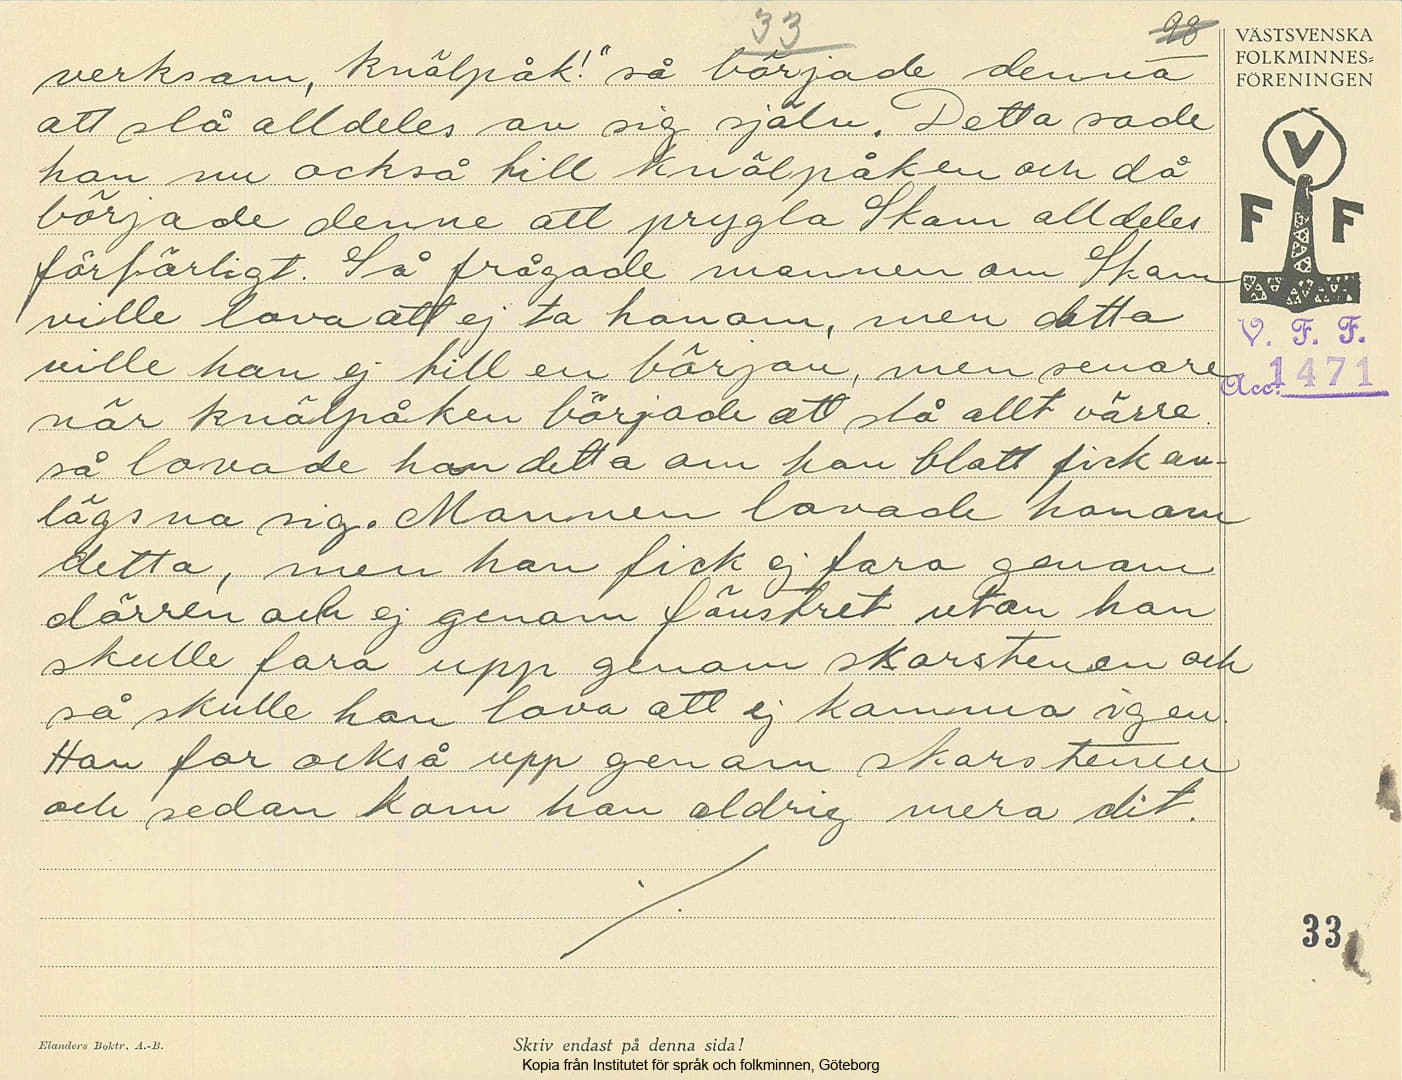 33
98
verksam, knälpåk!" så började denna
att slå alldeles av sig själv. Detta sade
han nu också till knälpåken och då
började denne att prygla Skam alldeles
förfärligt. Så frågade mannen om Skam
ville lova att ej ta honom, men detta
ville han ej till en början, men senare
när knälpåken började att slå allt värre
så lovade han detta om han blott fick av-
lägsna sig. Mannen lovade honom
detta, men han fick ej fara genom
dörren och ej genom fönstret utan han
skulle fara upp genom skorstenen och
så skulle han lova att ej komma igen.
Han for också upp genom skorstenen
och sedan kom han aldrig mera dit.
VÄSTSVENSKA
FOLKMINNES=
FÖRENINGEN
V
F F
V. F. F.
Acc. 1471
33
Elanders Boktr. A.-B.
Skriv endast på denna sida!
Kopia från Institutet för språk och folkminnen, Göteborg